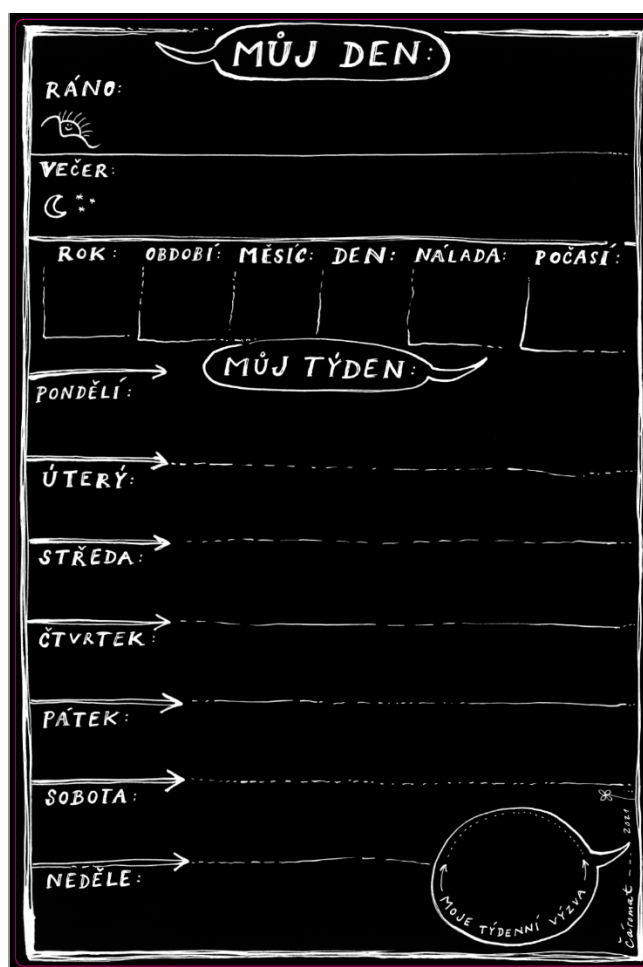 MŮJ DEN:
RÁNO:
VEČER:
ROK: OBDOBÍ: MĚSÍC: DEN: NÁLADA: POČASÍ:
MŮJ TÝDEN:
PONDĚLÍ:
ÚTERÝ:
STŘEDA:
ČTVRTEK:
PÁTEK:
SOBOTA:
NEDĚLE:
MOJE TÝDENNÍ VÝZVA
Čáromat --- 2021